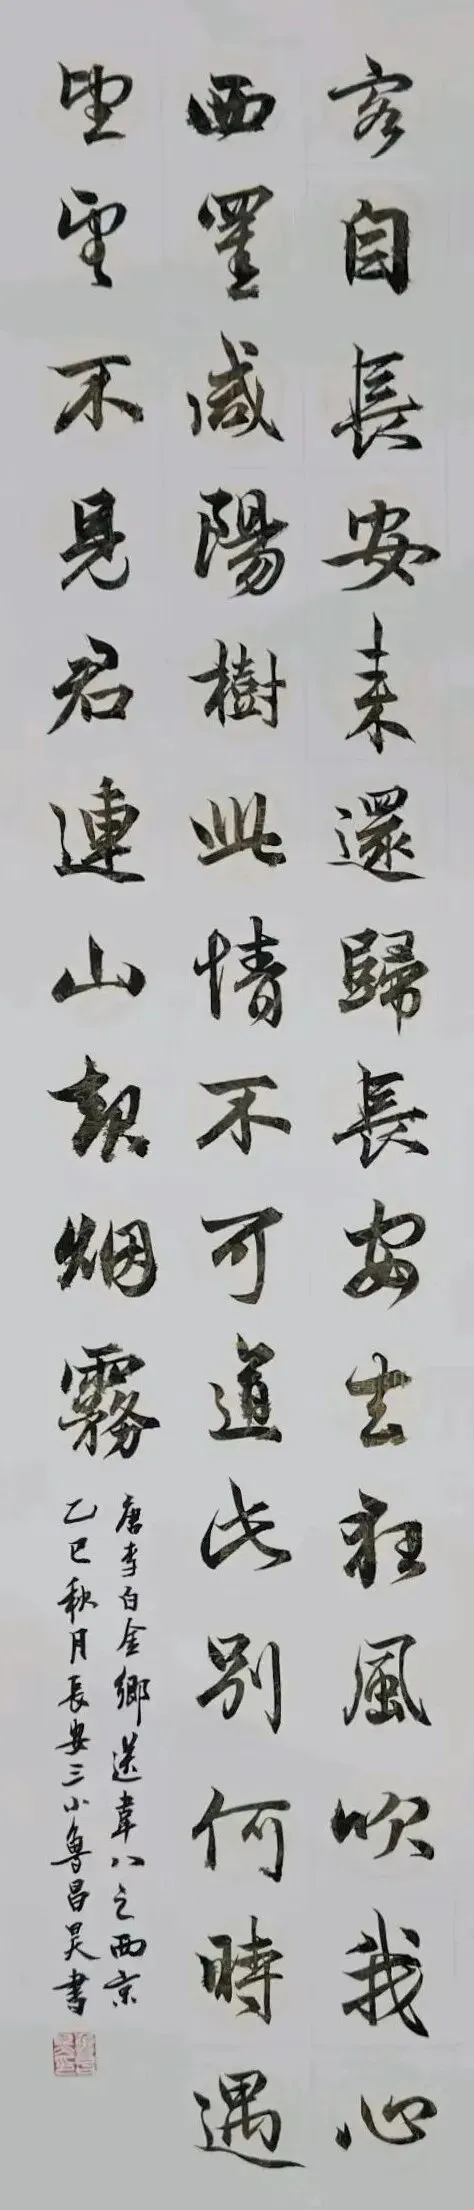 客自長安来還歸長安去狂風吹我心
西罣咸陽樹此情不可道此別何時遇
望望不見君連山起烟霧
唐李白金鄉送韋八之西京
乙巳秋月長安三小魯昌昊書